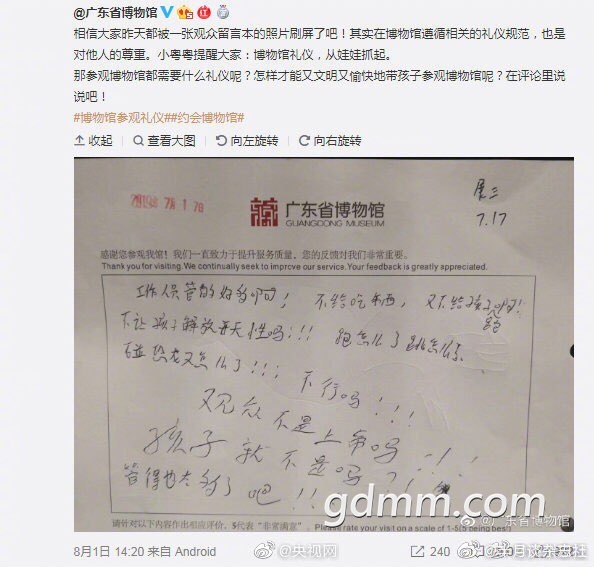 @广东省博物馆
相信大家昨天都被一张观众留言本的照片刷屏了吧！其实在博物馆遵循相关的礼仪规范，也是
对他人的尊重。小粤粤提醒大家：博物馆礼仪，从娃娃抓起。
那参观博物馆都需要什么礼仪呢？怎样才能又文明又愉快地带孩子参观博物馆呢？在评论里说
说吧！
#博物馆参观礼仪##约会博物馆#
收起 查看大图 向左旋转 向右旋转
展三
7.17
广东省博物馆
GUANGDONG MUSEUM
感谢您参观我馆！我们一直致力于提升服务质量，您的反馈对我们非常重要。
Thank you for visiting. We continually seek to improve our service. Your feedback is greatly appreciated.
工作人员管的好多啊！ 不给吃东西，又不给孩子跑！
不让孩子解放天性吗！！！ 跑怎么了 跳怎么了
碰恐龙又怎么了！！！
不行吗！！！
观众不是上帝吗！！！
孩子就不是吗？！
管得也太多了吧！！
gdmm.com
@广东省博物馆
请针对以下内容作出相应评价，5代表“非常满意”。Please rate your visit on a scale of 1-5(5 being best)
8月1日 14:20 来自 Android
@央视网
240